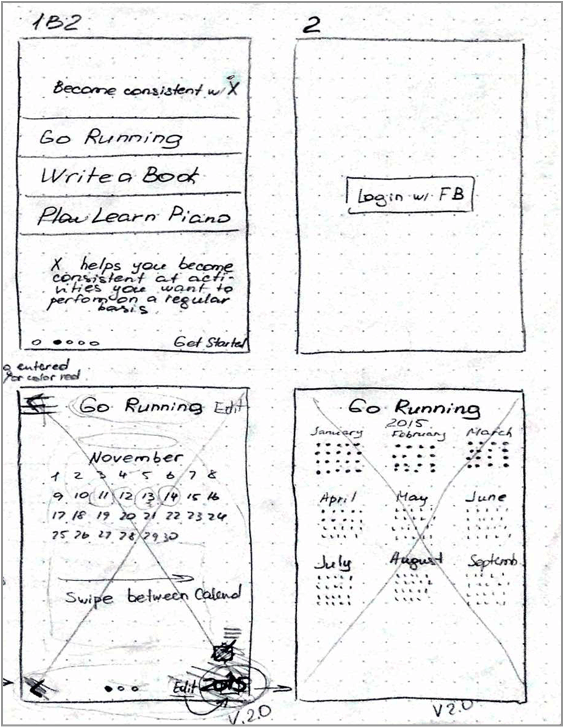 1B2
Become consistent w/ X
Go Running
Write a Book
Play Learn Piano
X helps you become
consistent at acti-
vities you want to
perform on a regular
basis.
Get Started
2
Login w/ FB
entered
for color red
Go Running Edit
November
1 2 3 4 5 6 7 8
9 10 11 12 13 14 15 16
17 18 19 20 21 22 23 24
25 26 27 28 29 30
Swipe between Calend
Edit 2015
V.2.0
Go Running
2015
January February March
April May June
July August Septemb
V2.0